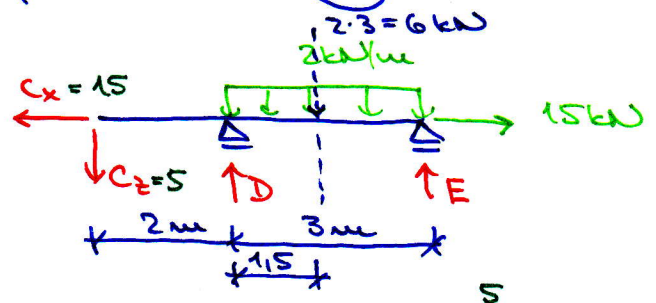 2·3 = 6 kN
2kN/m
Cx = 15
15kN
Cz=5
D
E
2m
3m
1,5
5